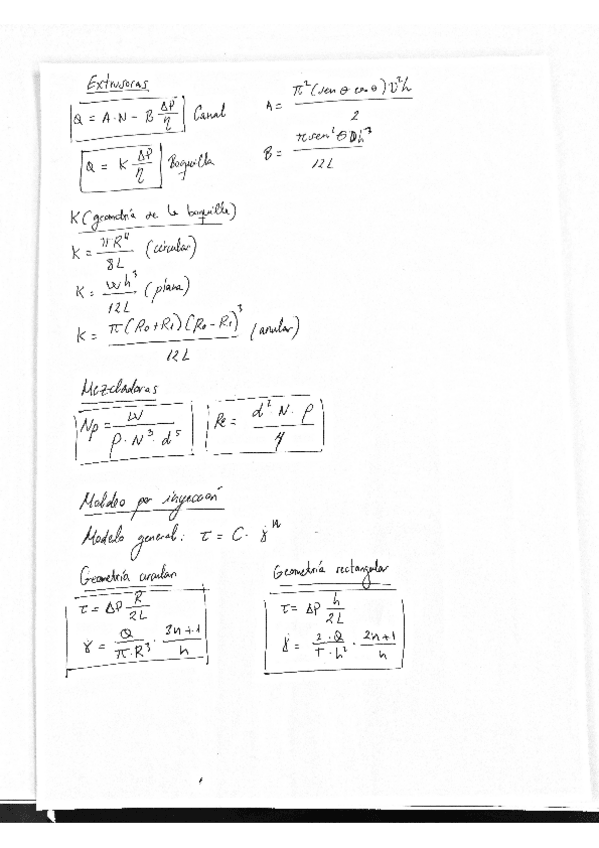 Extrusoras
Q = A·N − B ΔP/η Canal
A = π²(sen θ cos θ)D²h / 2
Q = K ΔP/η Boquilla
B = π sen²θ D h³ / 12L
K (geometría de la boquilla)
K = πR⁴ / 8L (circular)
K = wh³ / 12L (plana)
K = π(R₀+R₁)(R₀−R₁)³ / 12L (anular)
Mezcladoras
Np = W / ρ·N³·d⁵
Re = d²·N·ρ / η
Moldeo por inyección
Modelo general: τ = C·γ̇ⁿ
Geometría circular
τ = ΔP R/2L
γ̇ = Q/π·R³ · 3n+1/n
Geometría rectangular
τ = ΔP h/2L
γ̇ = 2·Q/T·h² · 2n+1/n